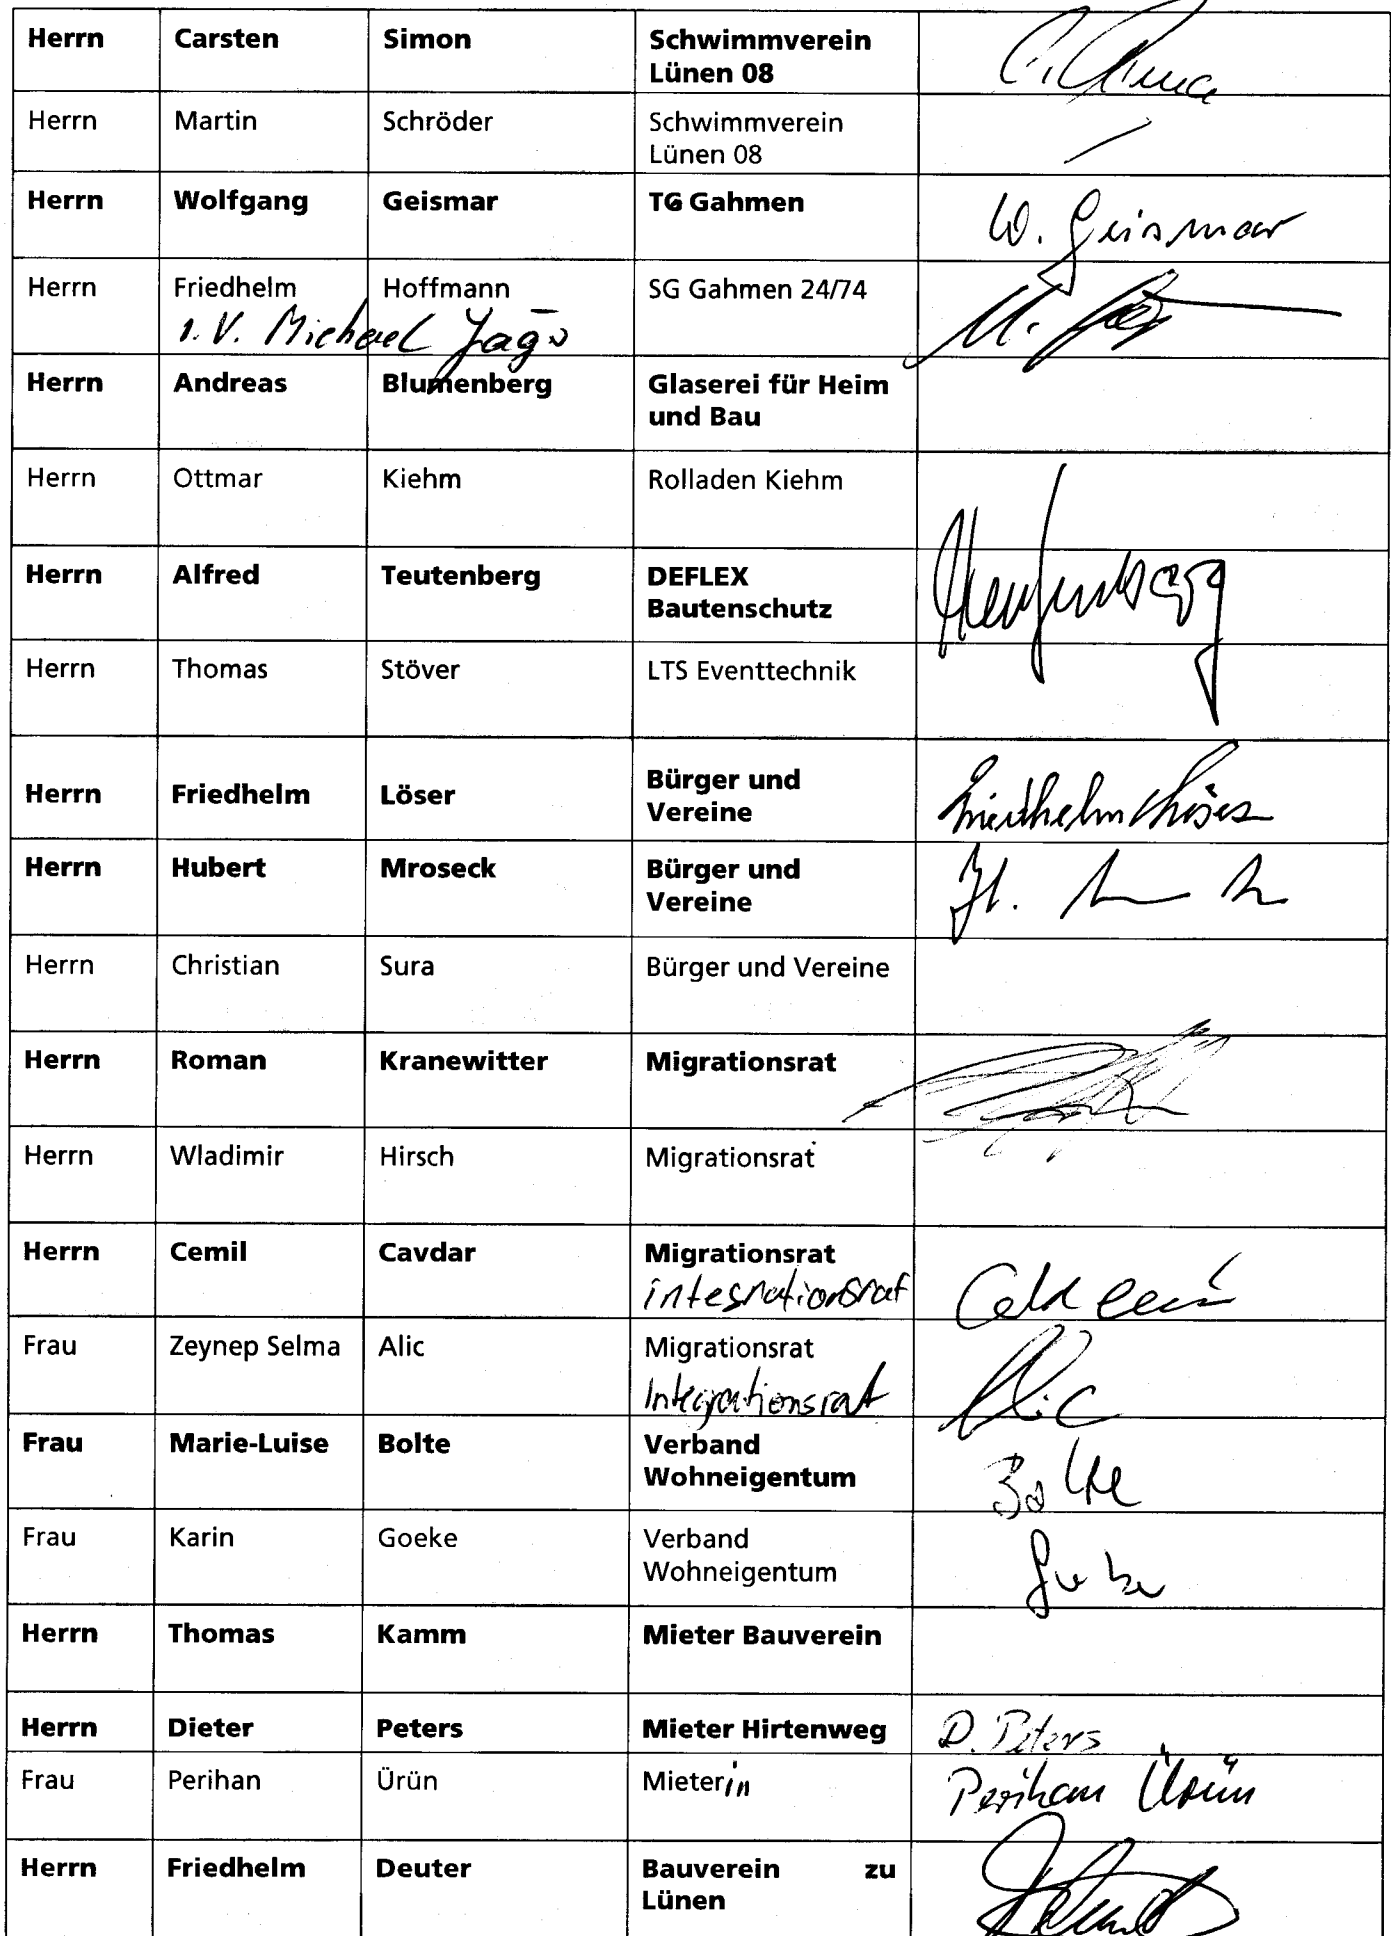 Herrn Carsten Simon Schwimmverein
Lünen 08
Herrn Martin Schröder Schwimmverein
Lünen 08
Herrn Wolfgang Geismar TG Gahmen W. Geismar
Herrn Friedhelm Hoffmann SG Gahmen 24/74
i.V. Michael
Herrn Andreas Blumenberg Glaserei für Heim
und Bau
Herrn Ottmar Kiehm Rolladen Kiehm
Herrn Alfred Teutenberg DEFLEX
Bautenschutz
Herrn Thomas Stöver LTS Eventtechnik
Herrn Friedhelm Löser Bürger und
Vereine
Herrn Hubert Mroseck Bürger und
Vereine
Herrn Christian Sura Bürger und Vereine
Herrn Roman Kranewitter Migrationsrat
Herrn Wladimir Hirsch Migrationsrat
Herrn Cemil Cavdar Migrationsrat
integrationsrat
Frau Zeynep Selma Alic Migrationsrat Alic
Integrationsrat
Frau Marie-Luise Bolte Verband
Wohneigentum Bolte
Frau Karin Goeke Verband
Wohneigentum
Herrn Thomas Kamm Mieter Bauverein
Herrn Dieter Peters Mieter Hirtenweg D. Peters
Frau Perihan Ürün Mieterin Perihan Ürün
Herrn Friedhelm Deuter Bauverein zu
Lünen